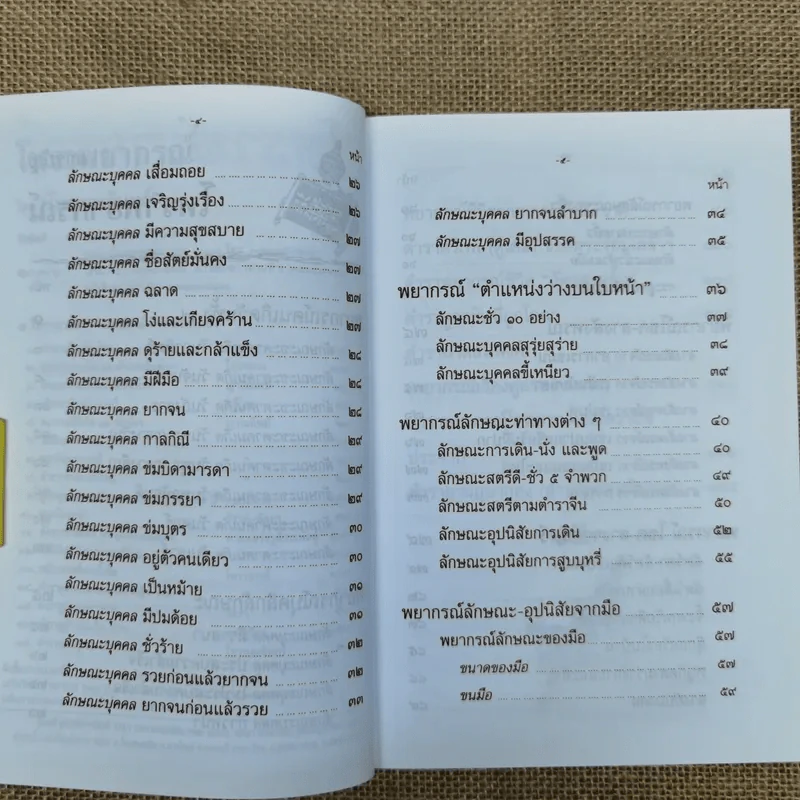 -๔-
หน้า
ลักษณะบุคคล เสื่อมถอย ๒๖
ลักษณะบุคคล เจริญรุ่งเรือง ๒๖
ลักษณะบุคคล มีความสุขสบาย ๒๗
ลักษณะบุคคล ซื่อสัตย์มั่นคง ๒๗
ลักษณะบุคคล ฉลาด ๒๗
ลักษณะบุคคล โง่และเกียจคร้าน ๒๗
ลักษณะบุคคล ดุร้ายและกล้าแข็ง ๒๘
ลักษณะบุคคล มีฝีมือ ๒๘
ลักษณะบุคคล ยากจน ๒๘
ลักษณะบุคคล กาลกิณี ๒๙
ลักษณะบุคคล ข่มบิดามารดา ๒๙
ลักษณะบุคคล ข่มภรรยา ๒๙
ลักษณะบุคคล ข่มบุตร ๓๐
ลักษณะบุคคล อยู่ตัวคนเดียว ๓๐
ลักษณะบุคคล เป็นหม้าย ๓๑
ลักษณะบุคคล มีปมด้อย ๓๑
ลักษณะบุคคล ชั่วร้าย ๓๒
ลักษณะบุคคล รวยก่อนแล้วยากจน ๓๒
ลักษณะบุคคล ยากจนก่อนแล้วรวย ๓๓
-๕-
หน้า
ลักษณะบุคคล ยากจนลำบาก ๓๔
ลักษณะบุคคล มีอุปสรรค ๓๕
พยากรณ์ “ตำแหน่งว่างบนใบหน้า” ๓๖
ลักษณะชั่ว ๑๐ อย่าง ๓๗
ลักษณะบุคคลสุรุ่ยสุร่าย ๓๘
ลักษณะบุคคลขี้เหนียว ๓๙
พยากรณ์ลักษณะท่าทางต่าง ๆ ๔๐
ลักษณะการเดิน-นั่ง และพูด ๔๐
ลักษณะสตรีดี-ชั่ว ๕ จำพวก ๔๙
ลักษณะสตรีตามตำราจีน ๕๐
ลักษณะอุปนิสัยการเดิน ๕๒
ลักษณะอุปนิสัยการสูบบุหรี่ ๕๕
พยากรณ์ลักษณะ-อุปนิสัยจากมือ ๕๗
พยากรณ์ลักษณะของมือ ๕๗
ขนาดของมือ ๕๗
ขนมือ ๕๙